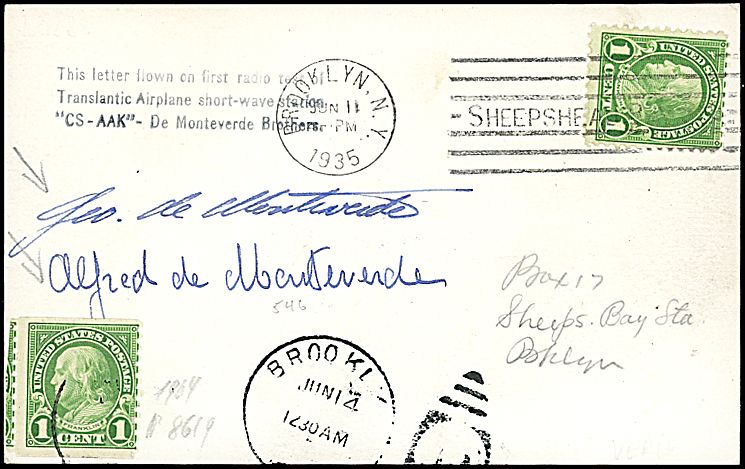 This letter flown on first radio test of
Translantic Airplane short-wave station
"CS-AAK"- De Monteverde Brothers.
BROOKLYN, N.Y.
JUN 11
PM
1935
SHEEPSHEAD
UNITED STATES POSTAGE
1 CENT 1
Geo. de Monteverde
Alfred de Monteverde
546
Box 17
Sheeps. Bay Sta
Bklyn
UNITED STATES POSTAGE
FRANKLIN
1 CENT 1
BROOKLY
JUN 14
1230AM
8619